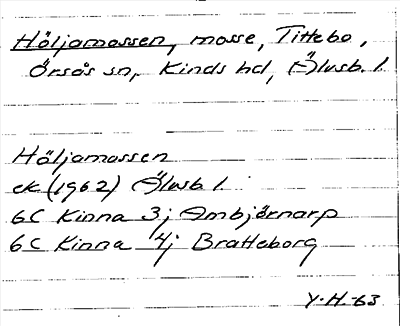 Höljamossen, mosse, Tittebo,
Örsås sn, Kinds hd, Älvsb. l.
Höljamossen
ek (1962) Älvsb l.
6C Kinna 3j Ambjörnarp
6C Kinna 4j Bratteborg
Y.H.-63